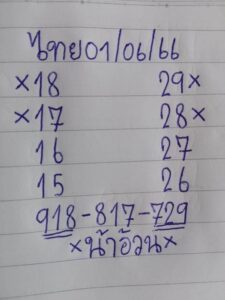 ไทย01/06/66
×18 29×
×17 28×
16 27
15 26
918-817-729
×น้าอ้วน×